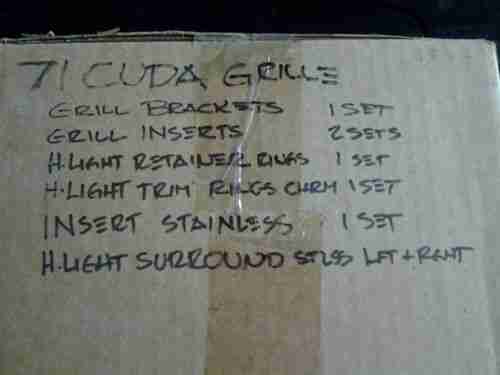 71 CUDA GRILLE
GRILL BRACKETS 1 SET
GRILL INSERTS 2 SETS
H.LIGHT RETAINER RINGS 1 SET
H.LIGHT TRIM RINGS CHRM 1 SET
INSERT STAINLESS 1 SET
H.LIGHT SURROUND STLSS LFT + RGHT